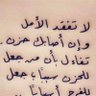 لا تفقد الأمل
وإن أصابك حزن ..
تفاءل بأن من جعل
للحزن سبباً، جعل
للفرح أسباباً ..